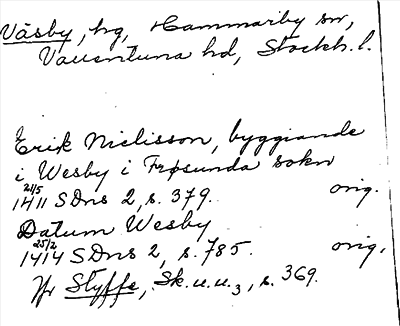 Väsby, hg, Hammarby sn,
Vallentuna hd, Stockh. l.
Erik Nielisson, byggiande
i Wesby i Frøsunda sokn
21/5
1411 SDns 2, s. 379. orig.
Datum Wesby
25/2
1414 SDns 2, s. 785. orig.
Jfr Styffe, Sk. u. u. 3, s. 369.